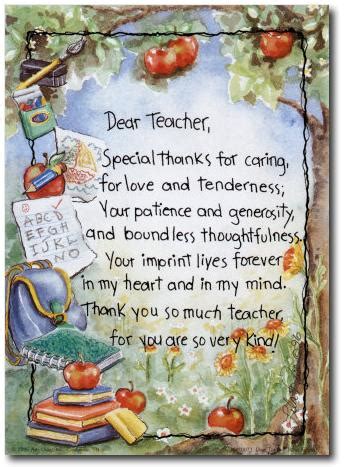 Dear Teacher,
Special thanks for caring,
for love and tenderness;
Your patience and generosity,
and boundless thoughtfulness.
Your imprint lives forever
in my heart and in my mind.
Thank you so much teacher,
for you are so very kind!
ABCD
EFGH
IJKL
NO